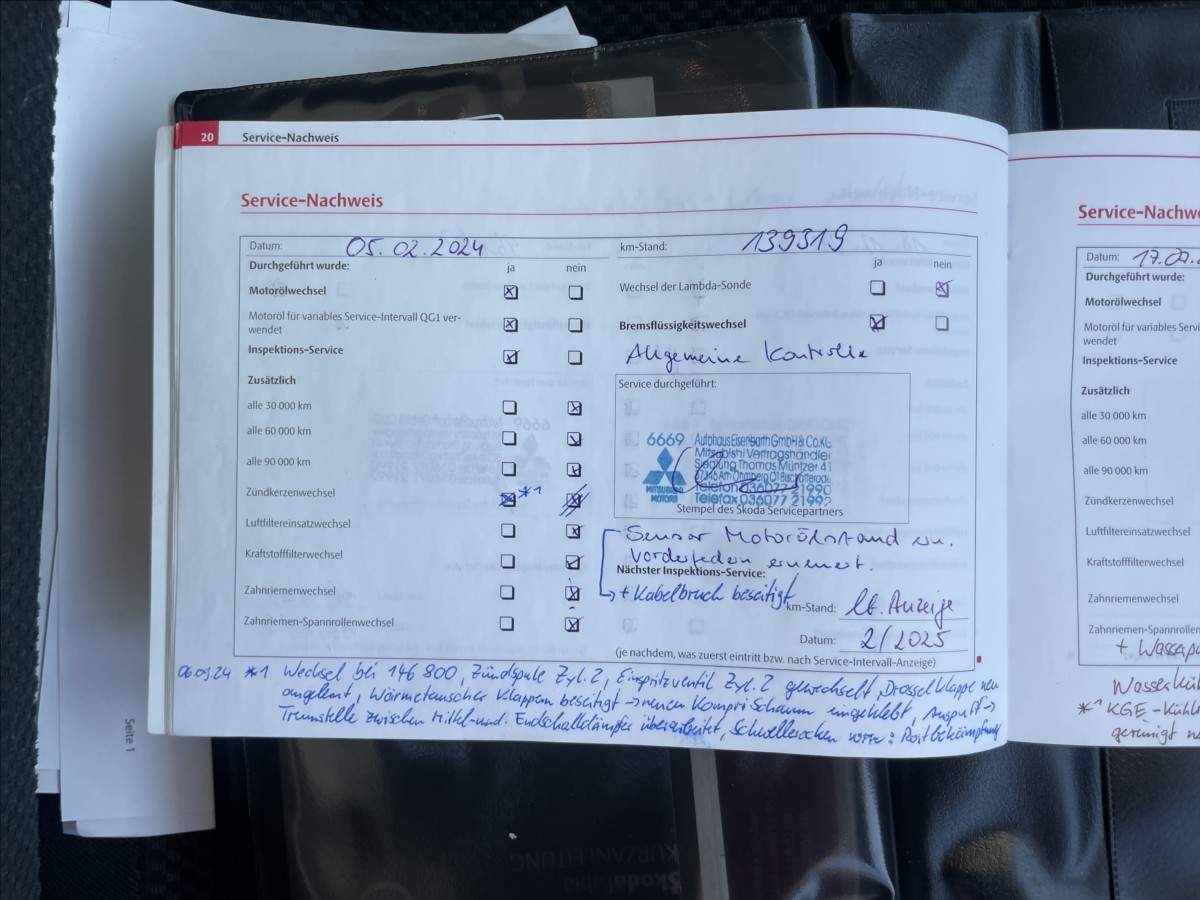 20 Service-Nachweis
Service-Nachweis
Datum: 05.02.2024 km-Stand: 139319
Durchgeführt wurde: ja nein
Motorölwechsel
Motoröl für variables Service-Intervall QG1 ver-
wendet
Inspektions-Service
Zusätzlich
alle 30 000 km
alle 60 000 km
alle 90 000 km
Zündkerzenwechsel *1
Luftfiltereinsatzwechsel
Kraftstofffilterwechsel
Zahnriemenwechsel
Zahnriemen-Spannrollenwechsel
ja nein
Wechsel der Lambda-Sonde
Bremsflüssigkeitswechsel
Allgemeine Kontrolle
Service durchgeführt:
6669 Autohaus Eisenbarth GmbH & Co.KG
Mitsubishi Vertragshändler
Siedlung Thomas Müntzer 41
37345 Am Ohmberg OT
Telefon 036077 21990
Telefax 036077 21992
MITSUBISHI
MOTORS
Stempel des Skoda Servicepartners
Sensor Motorölstand
Vorderfedern erneuert.
Nächster Inspektions-Service:
+ Kabelbruch beseitigt
km-Stand: lt. Anzeige
Datum: 2/2025
(je nachdem, was zuerst eintritt bzw. nach Service-Intervall-Anzeige)
06.09.24 *1 Wechsel bei 146 800, Zündspule Zyl. 2, Einspritzventil Zyl. 2 gewechselt, Drosselklappe neu
angelernt, Wärmetauscher Klappern beseitigt → neuen Kompri Schaum eingeklebt, Auspuff →
Trennstelle zwischen Mittel- und Endschalldämpfer überarbeitet, Rostbekämpfung
Service-Nachw
Datum: 17.0
Durchgeführt wurde:
Motorölwechsel
Motoröl für variables Service
wendet
Inspektions-Service
Zusätzlich
alle 30 000 km
alle 60 000 km
alle 90 000 km
Zündkerzenwechsel
Luftfiltereinsatzwechsel
Kraftstofffilterwechsel
Zahnriemenwechsel
Zahnriemen-Spannrollen
+ Wasserpu
Wasserküh
*1 KGE-Kühl
gereinigt
Seite 1
Skoda
KURZANLEITUNG